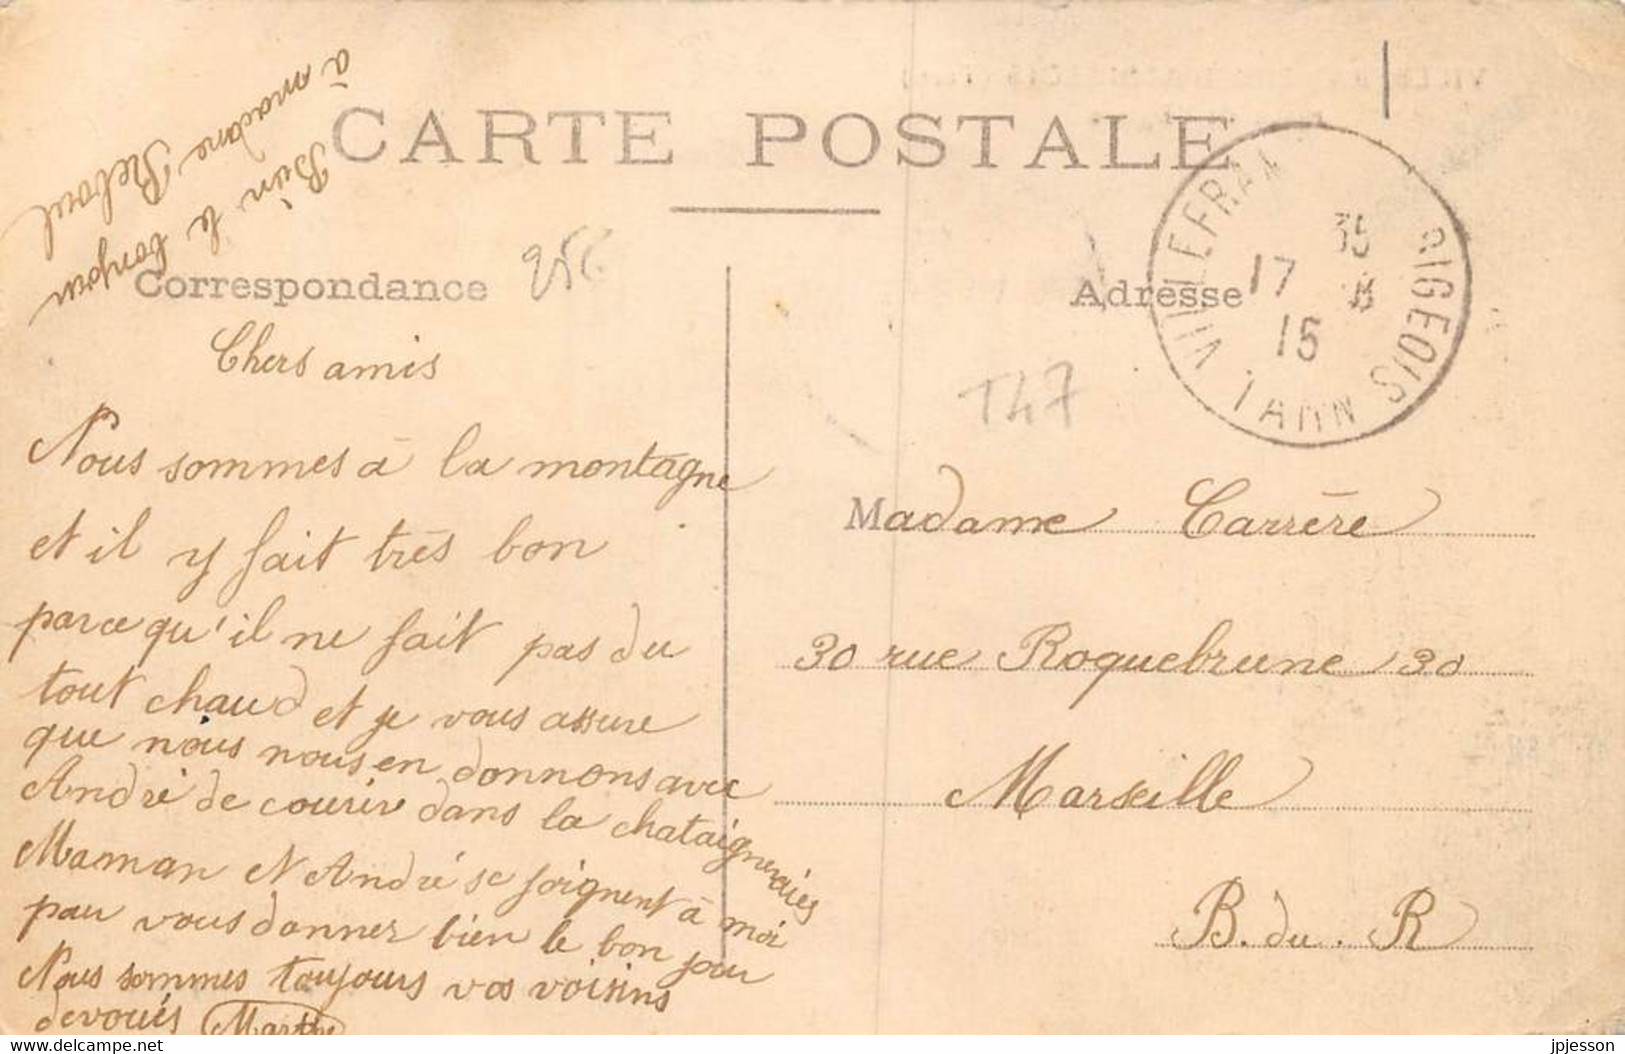 CARTE POSTALE
Correspondance
Adresse
VILLEFRAN
RIGEOIS
TARN
17
35
8
15
T47
Bien le bonjour
à madame Reboul
Chers amis
Nous sommes à la montagne
et il y fait très bon
parce qu'il ne fait pas du
tout chaud et je vous assure
que nous nous en donnons avec
André de courir dans la chataigneraies
Maman et André se joignent à moi
pour vous donner bien le bonjour
Nous sommes toujours vos voisins
devoués Marthe
Madame Carrère
30 rue Roquebrune 30
Marseille
B. du. R
jpjesson